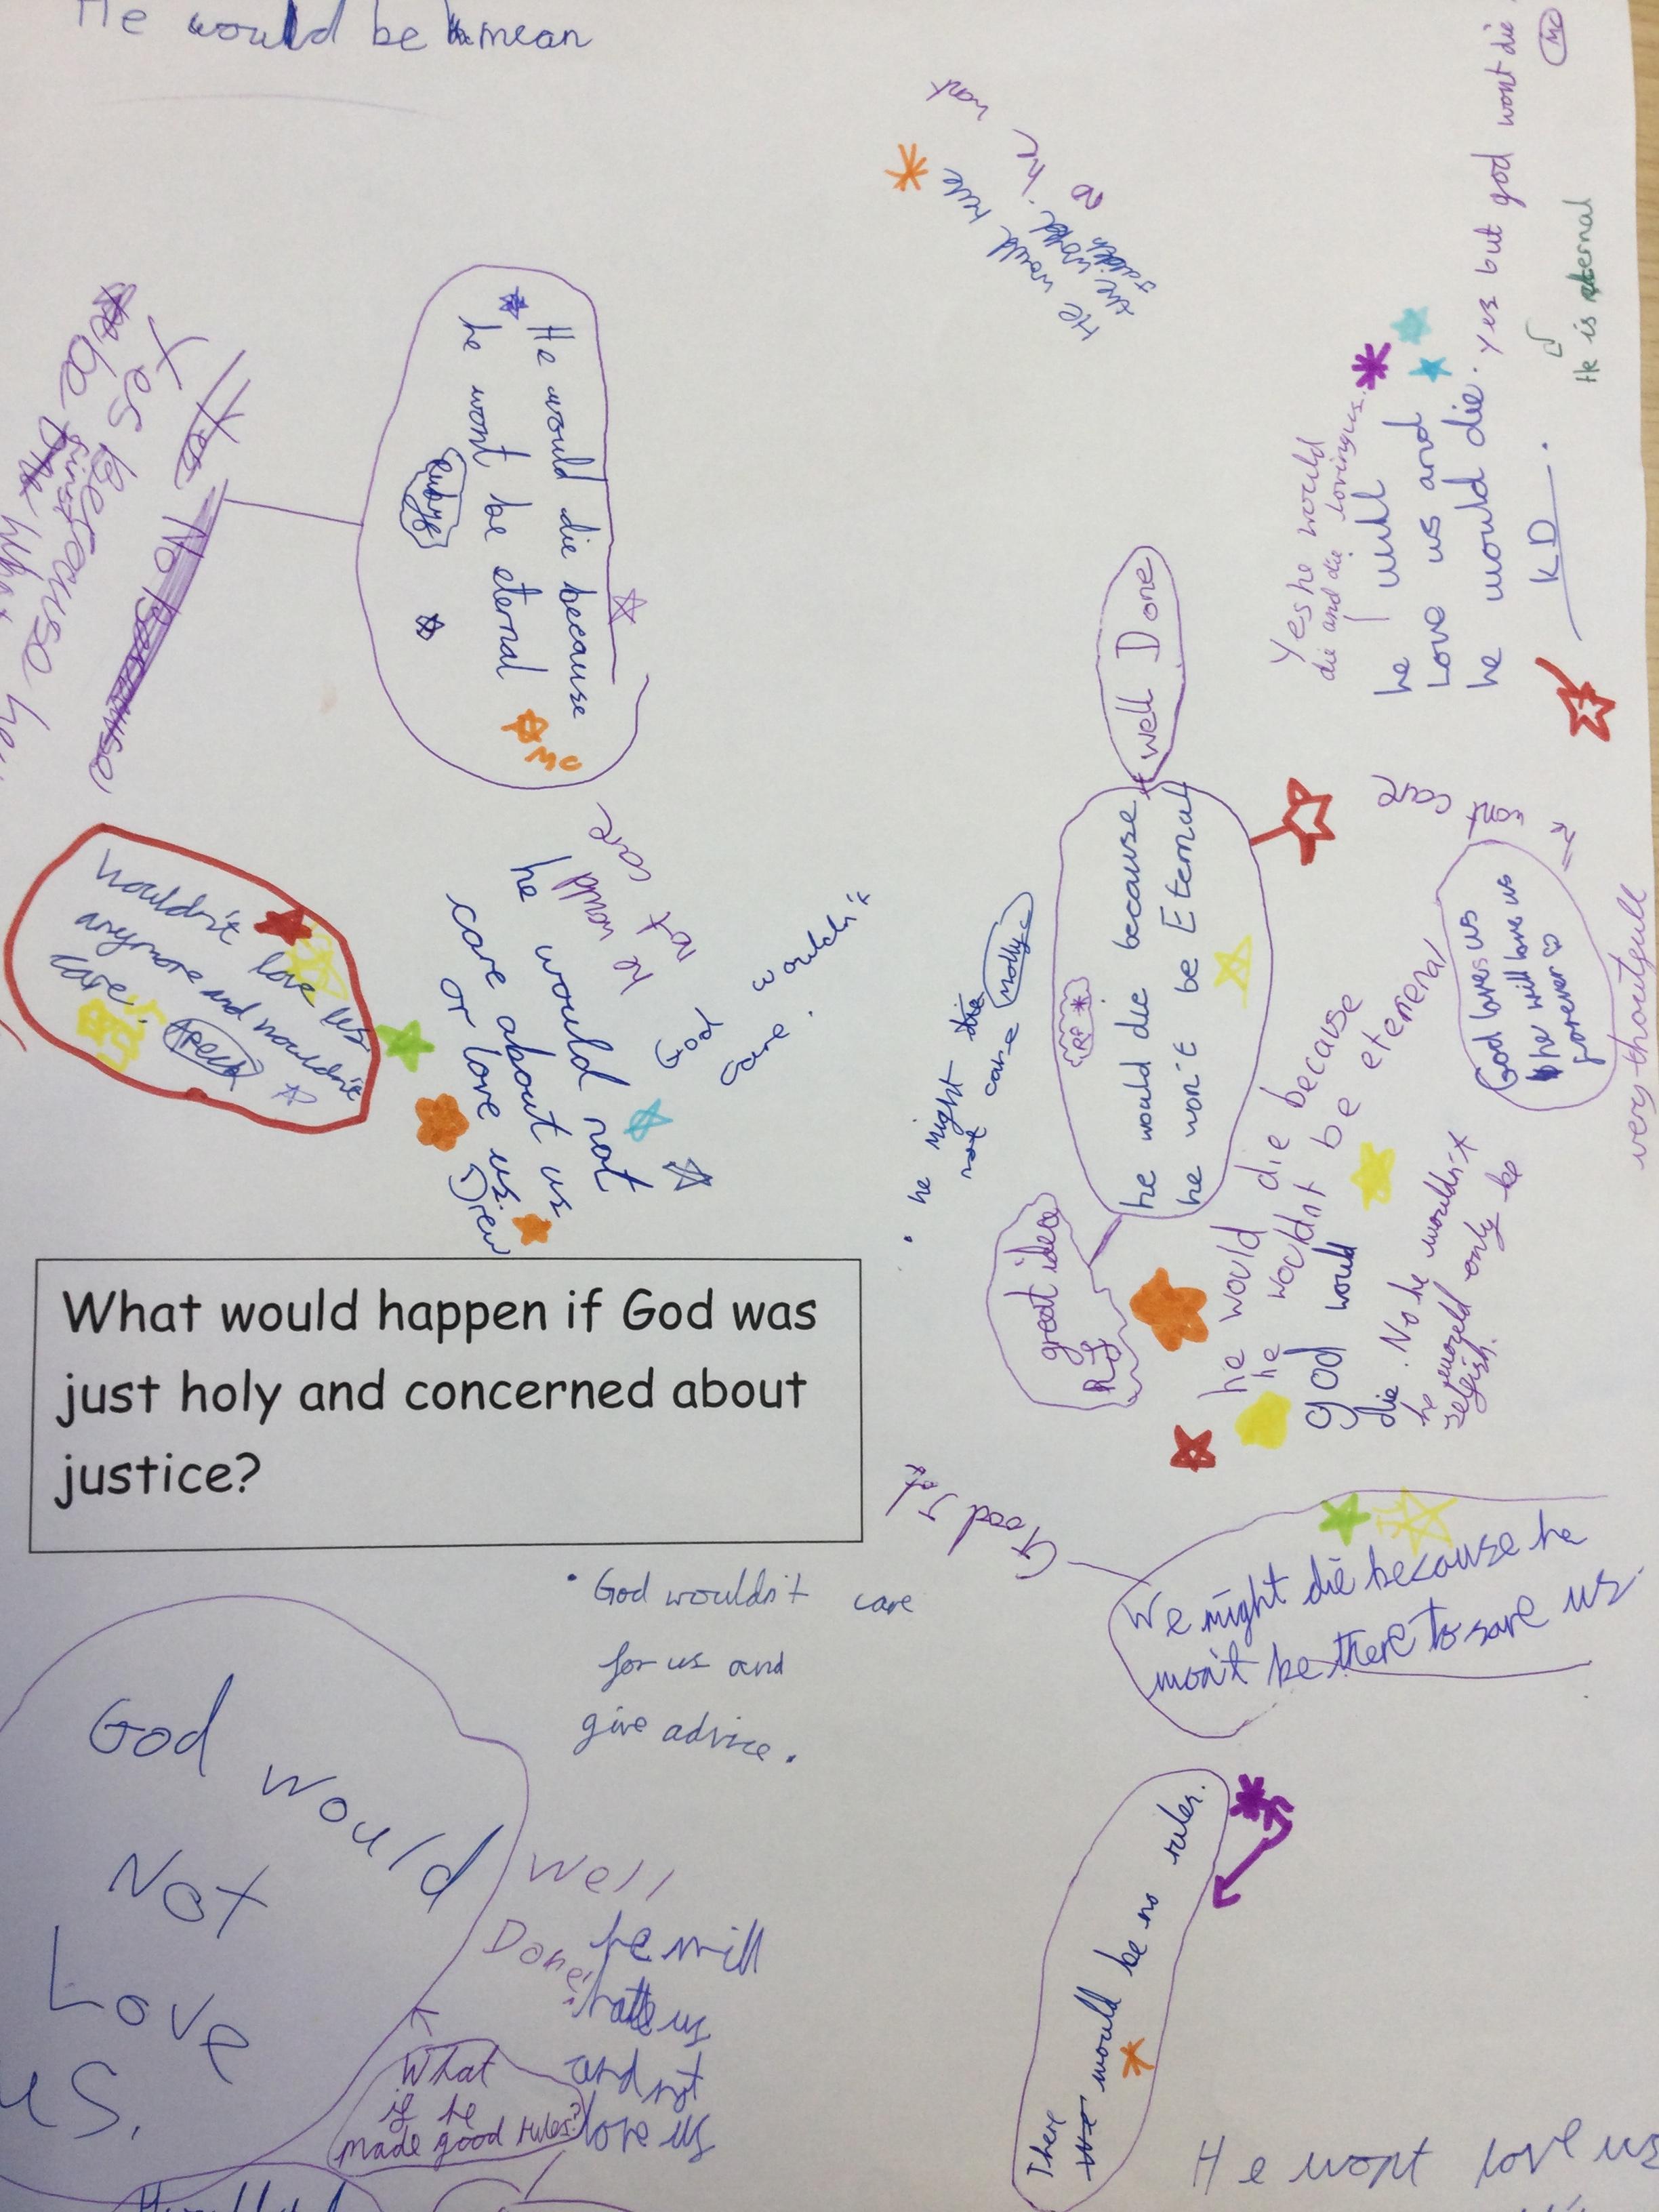 He would be mean
He would die because
he wont be eternal
MC
Yes
No
Yes because
he would not
care about us
or love us.
Drew
he would
not
care
wouldn't love us
anymore and wouldn't
care.
He would rule
the world.
Yes he would
die and die lovingus.
Love us and
he would die.
Yes but god wont die.
MC
He is eternal
KD
Well Done
he would die because
he won't be Eternal
RF
great idea
RF
he might
not care
Molly
he would die because
he wouldnt be eternal
God would
die. No he wouldn't
he would only be
selfish.
God loves us
he will love us
forever
very thoutfull
care
What would happen if God was
just holy and concerned about
justice?
Good Job
We might die because he
won't be there to save us
God wouldn't care
for us and
give advice.
God would
Not
Love
us.
Well
Done!
he will
hate us
and not
love us
What
if he
made good rules?
There would be no rules.
He wont love us